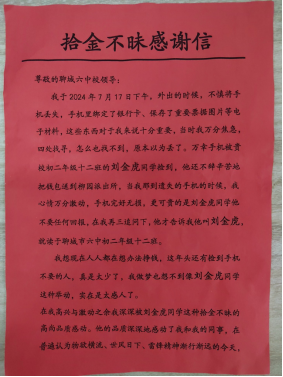 拾金不昧感谢信
尊敬的聊城六中校领导：
我于2024年7月17日下午，外出的时候，不慎将手
机丢失，手机里绑定了银行卡，保存了重要票据图片等电
子材料，这些东西对于我来说十分重要，当时我万分焦急，
四处找寻，怎么也找不到，原本以为丢了。万幸手机被贵
校初二年级十二班的刘金虎同学捡到，他还不辞辛苦地
把钱包送到柳园派出所，当我那到遗失的手机的时候，我
心情万分激动，手机完好无损，更可贵的是刘金虎同学他
不要任何回报，在我再三追问下，他才告诉我他叫刘金虎，
就读于聊城市六中初二年级十二班。
我想现在人人都在想办法挣钱，这年头还有捡到手机
不要的人，真是太少了。我做梦也想不到像刘金虎同学
这种举动，实在是太感人了。
在我高兴与激动之余我深深被刘金虎同学这种拾金不昧的
高尚品质感动。他的品质深深地感动了我和我的同事，在
普遍认为物欲横流、世风日下、雷锋精神渐行渐远的今天，